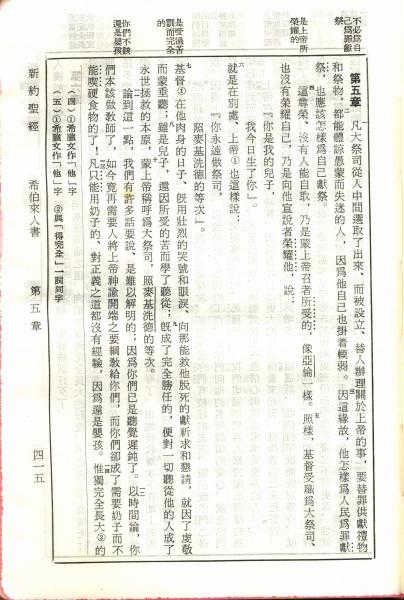 不必爲自
己爲罪獻
祭
是上帝所
榮耀的
是受過苦
罰而完全
的
你們不該
還是嬰孩
第五章 凡大祭司從人中間選取了出來、而被設立、替人辦理關於上帝的事、要替罪供獻禮物
和祭物,都能體諒愚蒙而失迷的人,因爲他自己也掛着輭弱。三因這緣故,他怎樣爲人民爲罪獻
祭,也應該怎樣爲自己獻祭。
四這尊榮、沒有人能自取、乃是蒙上帝召者所受的,像亞倫一樣。五照樣,基督受職爲大祭司、
也沒有榮耀自己,乃是向他宣說者榮耀他,說:
『你是我的兒子,
我今日生了你』。
六就是在別處、上帝①也這樣說:
『你永遠做祭司,
照麥基洗德的等次』。
七基督①在他肉身的日子、旣用壯烈的哭號和眼淚、向那能救他脫死的獻祈求和懇請,就因了虔敬
而蒙垂聽;八雖是兒子,還因所受的苦而學了聽從;九旣成了完全勝任的,便對一切聽從他的人成了
永世拯救的本原,蒙上帝稱呼爲大祭司,照麥基洗德的等次。
論到這一點,我們有許多話要說、是難以解明的;因爲你們已是聽覺遲鈍了。一二以時間論,你
們本該做教師了,如今竟再需要人將上帝神諭開端之要綱教給你們,而你們卻成了需要奶子而不
能喫硬食物的了!一三凡只能用奶子的、對正義之道都沒有經驗,因爲還是嬰孩。一四惟獨完全長大②的
(四)①希臘文作「他」字
(五)①希臘文作「他」字 ②與「得完全」一詞同字
新約聖經 希伯來人書 第五章 四一五